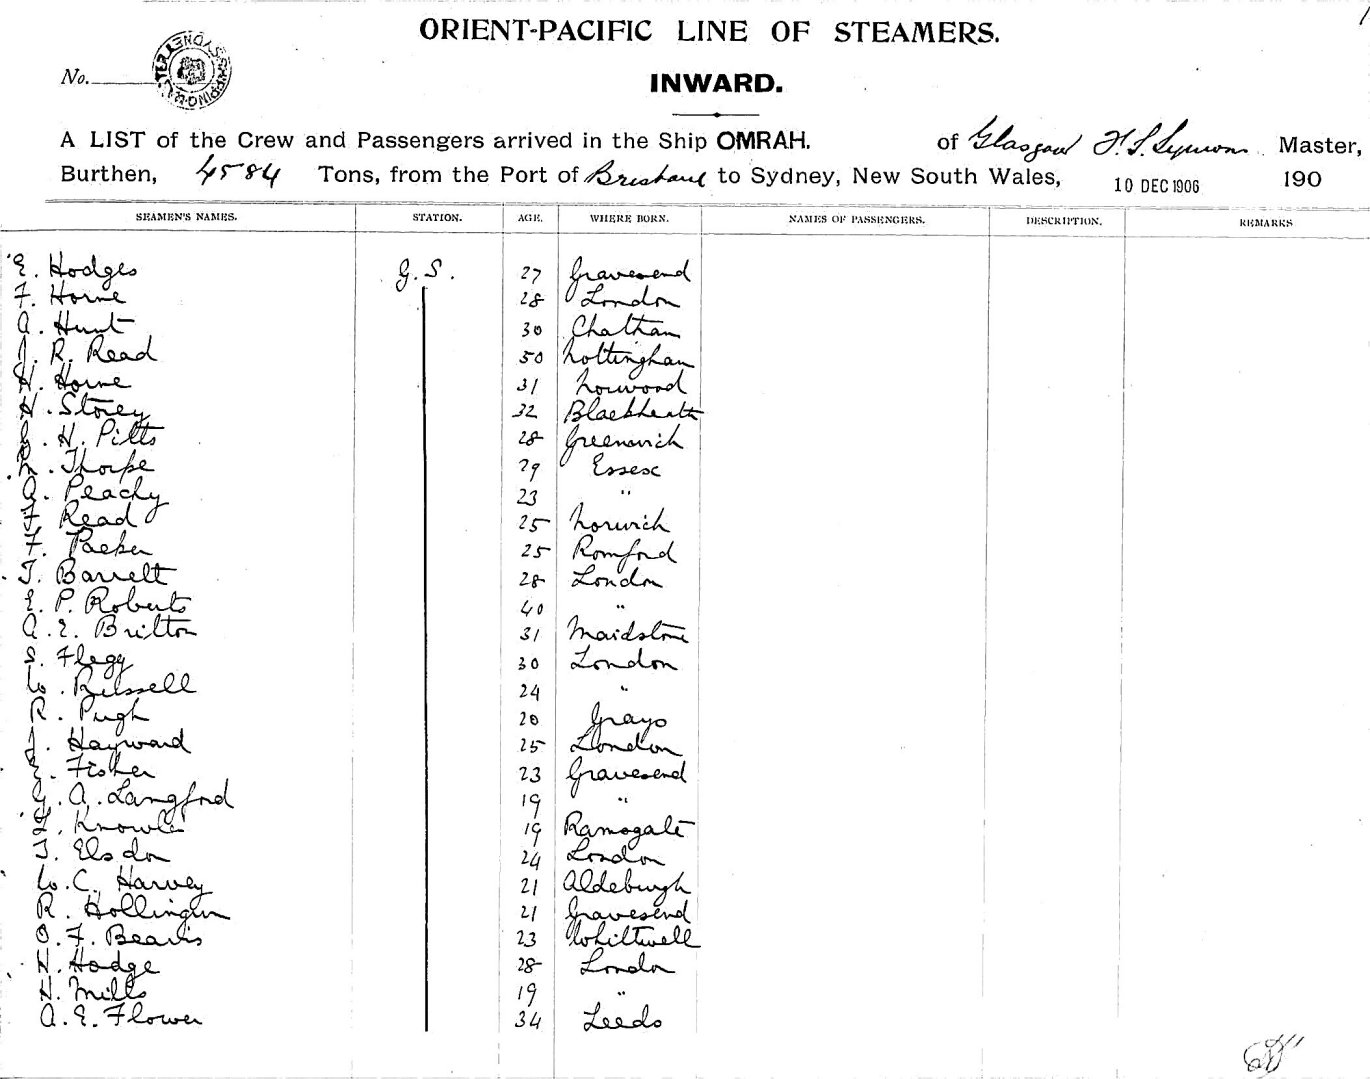 ORIENT-PACIFIC LINE OF STEAMERS.
No.
INWARD.
A LIST of the Crew and Passengers arrived in the Ship OMRAH. of Glasgow F. S. Symons Master,
Burthen, 4584 Tons, from the Port of Brisbane to Sydney, New South Wales, 10 DEC 1906 190
SEAMEN'S NAMES. STATION. AGE. WHERE BORN. NAMES OF PASSENGERS. DESCRIPTION. REMARKS
E. Hodges G.S. 27 Gravesend
F. Horne 28 London
A. Hunt 30 Chatham
J. R. Read 50 Nottingham
H. Horne 31 Norwood
H. Storey 32 Blackheath
G. H. Pitts 28 Greenwich
Thorpe 29 Essex
A. Peachy 23 "
F. Read 25 Norwich
F. Packer 25 Romford
T. Barrett 28 London
E. P. Roberts 40 "
A. E. Britton 31 Maidstone
S. Flegg 30 London
W. Russell 24 "
R. Pugh 20 Grays
J. Hayward 25 London
Fisher 23 Gravesend
G. A. Langford 19 "
Knowles 19 Ramsgate
T. Elsdon 24 London
W. C. Harvey 21 Aldeburgh
R. Hollingum 21 Gravesend
O. F. Beavis 23 Whittwell
H. Hodge 28 London
H. Mills 19 "
A. E. Flower 34 Leeds